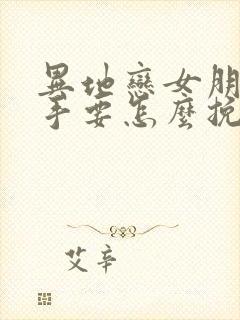 異地戀女朋
手要怎麼挽
艾辛